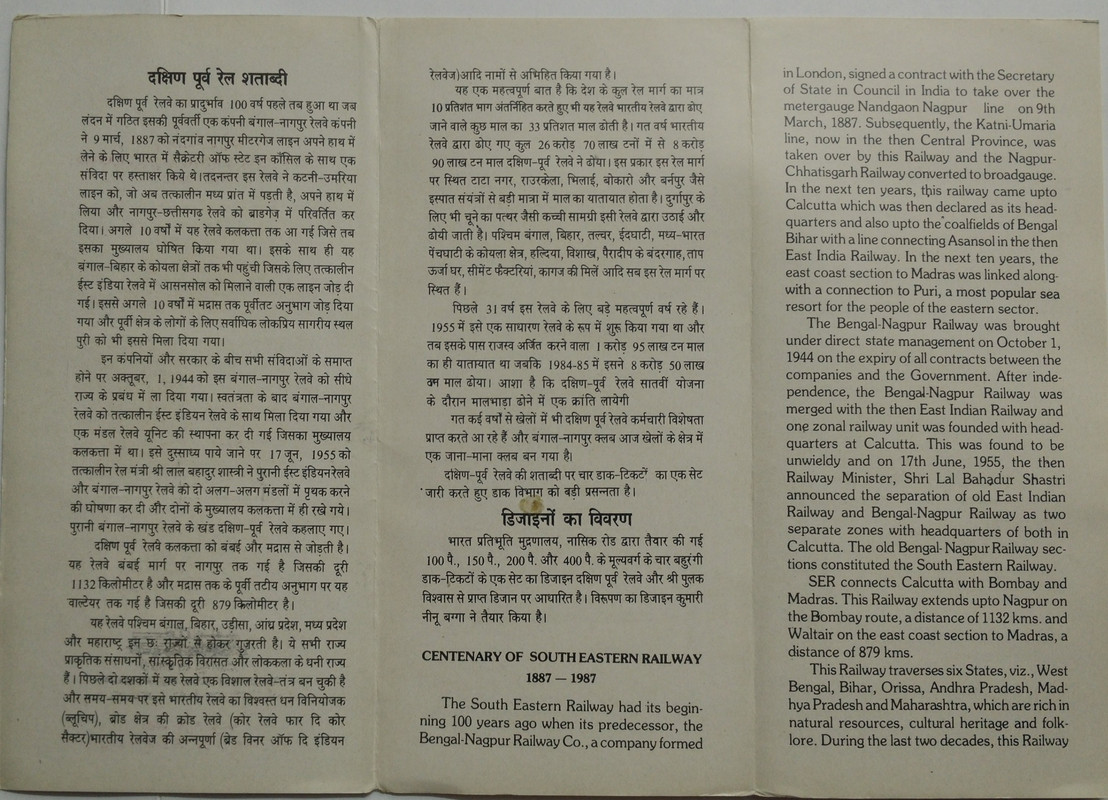 दक्षिण पूर्व रेल शताब्दी
दक्षिण पूर्व रेलवे का प्रादुर्भाव 100 वर्ष पहले तब हुआ था जब
लंदन में गठित इसकी पूर्ववर्ती एक कंपनी बंगाल-नागपुर रेलवे कंपनी
ने 9 मार्च, 1887 को नंदगांव नागपुर मीटरगेज लाइन अपने हाथ में
लेने के लिए भारत में सैक्रेटरी ऑफ स्टेट इन कौंसिल के साथ एक
संविदा पर हस्ताक्षर किये थे।तदनन्तर इस रेलवे ने कटनी-उमरिया
लाइन को, जो अब तत्कालीन मध्य प्रांत में पड़ती है, अपने हाथ में
लिया और नागपुर-छत्तीसगढ़ रेलवे को ब्राडगेज़ में परिवर्तित कर
दिया। अगले 10 वर्षों में यह रेलवे कलकत्ता तक आ गई जिसे तब
इसका मुख्यालय घोषित किया गया था। इसके साथ ही यह
बंगाल-बिहार के कोयला क्षेत्रों तक भी पहुंची जिसके लिए तत्कालीन
ईस्ट इंडिया रेलवे में आसनसोल को मिलाने वाली एक लाइन जोड़ दी
गई। इससे अगले 10 वर्षों में मद्रास तक पूर्वीतट अनुभाग जोड़ दिया
गया और पूर्वी क्षेत्र के लोगों के लिए सर्वाधिक लोकप्रिय सागरीय स्थल
पुरी को भी इससे मिला दिया गया।
इन कंपनियों और सरकार के बीच सभी संविदाओं के समाप्त
होने पर अक्तूबर, 1, 1944 को इस बंगाल-नागपुर रेलवे को सीधे
राज्य के प्रबंध में ला दिया गया। स्वतंत्रता के बाद बंगाल-नागपुर
रेलवे को तत्कालीन ईस्ट इंडियन रेलवे के साथ मिला दिया गया और
एक मंडल रेलवे यूनिट की स्थापना कर दी गई जिसका मुख्यालय
कलकत्ता में था। इसे दुस्साध्य पाये जाने पर 17 जून, 1955 को
तत्कालीन रेल मंत्री श्री लाल बहादुर शास्त्री ने पुरानी ईस्ट इंडियनरेलवे
और बंगाल-नागपुर रेलवे को दो अलग-अलग मंडलों में पृथक करने
की घोषणा कर दी और दोनों के मुख्यालय कलकत्ता में ही रखे गये।
पुरानी बंगाल-नागपुर रेलवे के खंड दक्षिण-पूर्व रेलवे कहलाए गए।
दक्षिण पूर्व रेलवे कलकत्ता को बंबई और मद्रास से जोड़ती है।
यह रेलवे बंबई मार्ग पर नागपुर तक गई है जिसकी दूरी
1132 किलोमीटर है और मद्रास तक के पूर्वी तटीय अनुभाग पर यह
वाल्टेयर तक गई है जिसकी दूरी 879 किलोमीटर है।
यह रेलवे पश्चिम बंगाल, बिहार, उड़ीसा, आंध्र प्रदेश, मध्य प्रदेश
और महाराष्ट्र इन छः राज्यों से होकर गुजरती है। ये सभी राज्य
प्राकृतिक संसाधनों, सांस्कृतिक विरासत और लोककला के धनी राज्य
हैं। पिछले दो दशकों में यह रेलवे एक विशाल रेलवे-तंत्र बन चुकी है
और समय-समय पर इसे भारतीय रेलवे का विश्वस्त धन विनियोजक
(ब्लूचिप), ब्रोड क्षेत्र की क्रोड रेलवे (कोर रेलवे फार दि कोर
सैक्टर)भारतीय रेलवेज की अन्नपूर्णा (ब्रेड विनर ऑफ दि इंडियन
रेलवेज)आदि नामों से अभिहित किया गया है।
यह एक महत्वपूर्ण बात है कि देश के कुल रेल मार्ग का मात्र
10 प्रतिशत भाग अंतर्निहित करते हुए भी यह रेलवे भारतीय रेलवे द्वारा ढोए
जाने वाले कुछ माल का 33 प्रतिशत माल ढोती है। गत वर्ष भारतीय
रेलवे द्वारा ढोए गए कुल 26 करोड़ 70 लाख टनों में से 8 करोड़
90 लाख टन माल दक्षिण-पूर्व रेलवे ने ढोया। इस प्रकार इस रेल मार्ग
पर स्थित टाटा नगर, राउरकेला, भिलाई, बोकारो और बर्नपुर जैसे
इस्पात संयंत्रों से बड़ी मात्रा में माल का यातायात होता है। दुर्गापुर के
लिए भी चूने का पत्थर जैसी कच्ची सामग्री इसी रेलवे द्वारा उठाई और
ढोयी जाती है। पश्चिम बंगाल, बिहार, तल्चर, ईदघाटी, मध्य-भारत
पेंचघाटी के कोयला क्षेत्र, हल्दिया, विशाख, पैरादीप के बंदरगाह, ताप
ऊर्जा घर, सीमेंट फैक्टरियां, कागज की मिलें आदि सब इस रेल मार्ग पर
स्थित हैं।
पिछले 31 वर्ष इस रेलवे के लिए बड़े महत्वपूर्ण वर्ष रहे हैं।
1955 में इसे एक साधारण रेलवे के रूप में शुरू किया गया था और
तब इसके पास राजस्व अर्जित करने वाला 1 करोड़ 95 लाख टन माल
का ही यातायात था जबकि 1984-85 में इसने 8 करोड़ 50 लाख
टन माल ढोया। आशा है कि दक्षिण-पूर्व रेलवे सातवीं योजना
के दौरान मालभाड़ा ढोने में एक क्रांति लायेगी
गत कई वर्षों से खेलों में भी दक्षिण पूर्व रेलवे कर्मचारी विशेषता
प्राप्त करते आ रहे हैं और बंगाल-नागपुर क्लब आज खेलों के क्षेत्र में
एक जाना-माना क्लब बन गया है।
दक्षिण-पूर्व रेलवे की शताब्दी पर चार डाक-टिकटों का एक सेट
जारी करते हुए डाक विभाग को बड़ी प्रसन्नता है।
डिजाइनों का विवरण
भारत प्रतिभूति मुद्रणालय, नासिक रोड द्वारा तैयार की गई
100 पै., 150 पै., 200 पै. और 400 पै. के मूल्यवर्ग के चार बहुरंगी
डाक-टिकटों के एक सेट का डिजाइन दक्षिण पूर्व रेलवे और श्री पुलक
विश्वास से प्राप्त डिजान पर आधारित है। विरूपण का डिजाइन कुमारी
नीनू बग्गा ने तैयार किया है।
CENTENARY OF SOUTH EASTERN RAILWAY
1887 — 1987
The South Eastern Railway had its begin-
ning 100 years ago when its predecessor, the
Bengal-Nagpur Railway Co., a company formed
in London, signed a contract with the Secretary
of State in Council in India to take over the
metergauge Nandgaon Nagpur line on 9th
March, 1887. Subsequently, the Katni-Umaria
line, now in the then Central Province, was
taken over by this Railway and the Nagpur-
Chhatisgarh Railway converted to broadgauge.
In the next ten years, this railway came upto
Calcutta which was then declared as its head-
quarters and also upto the coalfields of Bengal
Bihar with a line connecting Asansol in the then
East India Railway. In the next ten years, the
east coast section to Madras was linked along-
with a connection to Puri, a most popular sea
resort for the people of the eastern sector.
The Bengal-Nagpur Railway was brought
under direct state management on October 1,
1944 on the expiry of all contracts between the
companies and the Government. After inde-
pendence, the Bengal-Nagpur Railway was
merged with the then East Indian Railway and
one zonal railway unit was founded with head-
quarters at Calcutta. This was found to be
unwieldy and on 17th June, 1955, the then
Railway Minister, Shri Lal Bahadur Shastri
announced the separation of old East Indian
Railway and Bengal-Nagpur Railway as two
separate zones with headquarters of both in
Calcutta. The old Bengal-Nagpur Railway sec-
tions constituted the South Eastern Railway.
SER connects Calcutta with Bombay and
Madras. This Railway extends upto Nagpur on
the Bombay route, a distance of 1132 kms. and
Waltair on the east coast section to Madras, a
distance of 879 kms.
This Railway traverses six States, viz., West
Bengal, Bihar, Orissa, Andhra Pradesh, Mad-
hya Pradesh and Maharashtra, which are rich in
natural resources, cultural heritage and folk-
lore. During the last two decades, this Railway